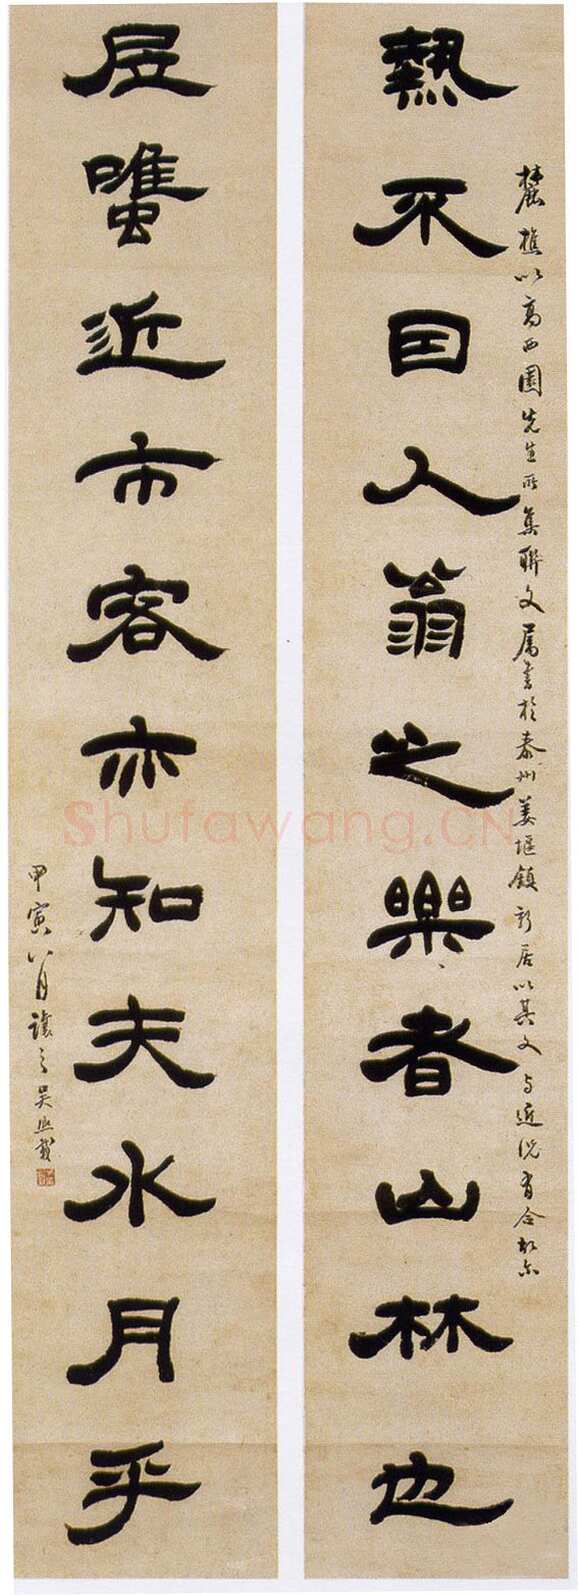 熱不因人翁之樂者山林也
麓樵以高西園先生所集聯文屬書於泰州姜堰鎮新居以其文与近況有合故尔
居雖近市客亦知夫水月乎
甲寅八月讓之吳熙載
Shufawang.CN